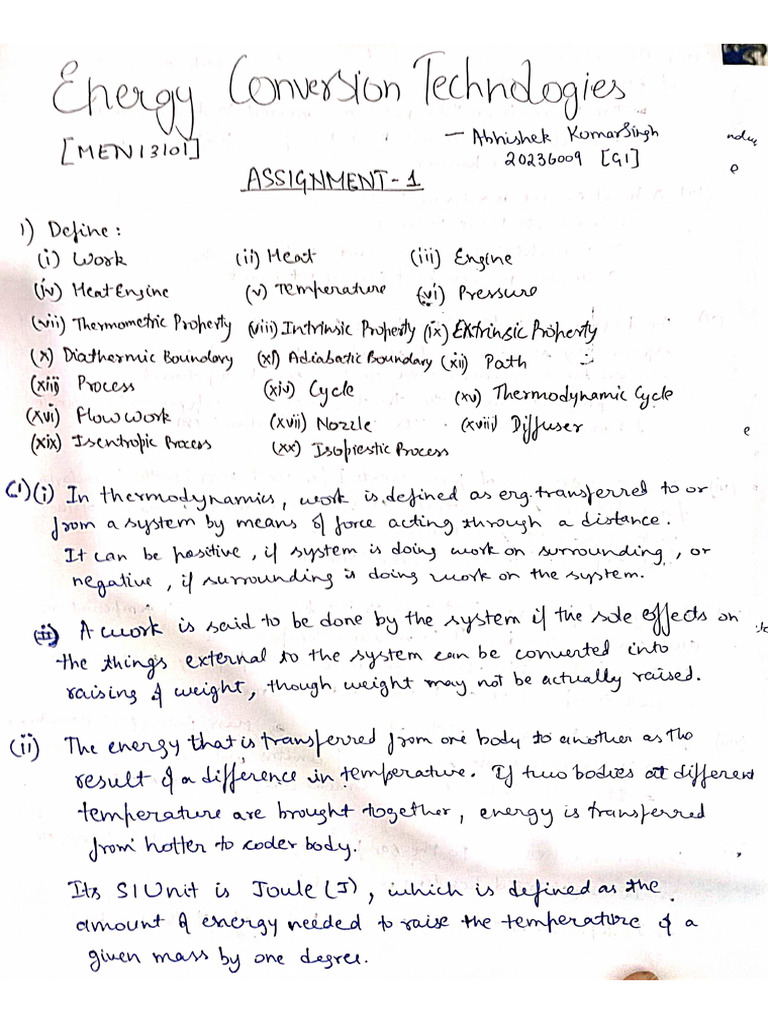 Energy Conversion Technologies
[MEN13101]
- Abhishek Kumar Singh
20236009 [G1]
ASSIGNMENT-1
1) Define :
(i) Work (ii) Heat (iii) Engine
(iv) Heat Engine (v) Temperature (vi) Pressure
(vii) Thermometric Property (viii) Intrinsic Property (ix) Extrinsic Property
(x) Diathermic Boundary (xi) Adiabatic Boundary (xii) Path
(xiii) Process (xiv) Cycle (xv) Thermodynamic Cycle
(xvi) Flow work (xvii) Nozzle (xviii) Diffuser
(xix) Isentropic Process (xx) Isopiestic Process
(1)(i) In thermodynamics, work is defined as erg. transferred to or
from a system by means of force acting through a distance.
It can be positive, if system is doing work on surrounding, or
negative, if surrounding is doing work on the system.
A work is said to be done by the system if the sole effects on
the things external to the system can be converted into
raising of weight, though weight may not be actually raised.
(ii) The energy that is transferred from one body to another as the
result of a difference in temperature. If two bodies at different
temperature are brought together, energy is transferred
from hotter to colder body.
Its SI Unit is Joule (J), which is defined as the
amount of energy needed to raise the temperature of a
given mass by one degree.